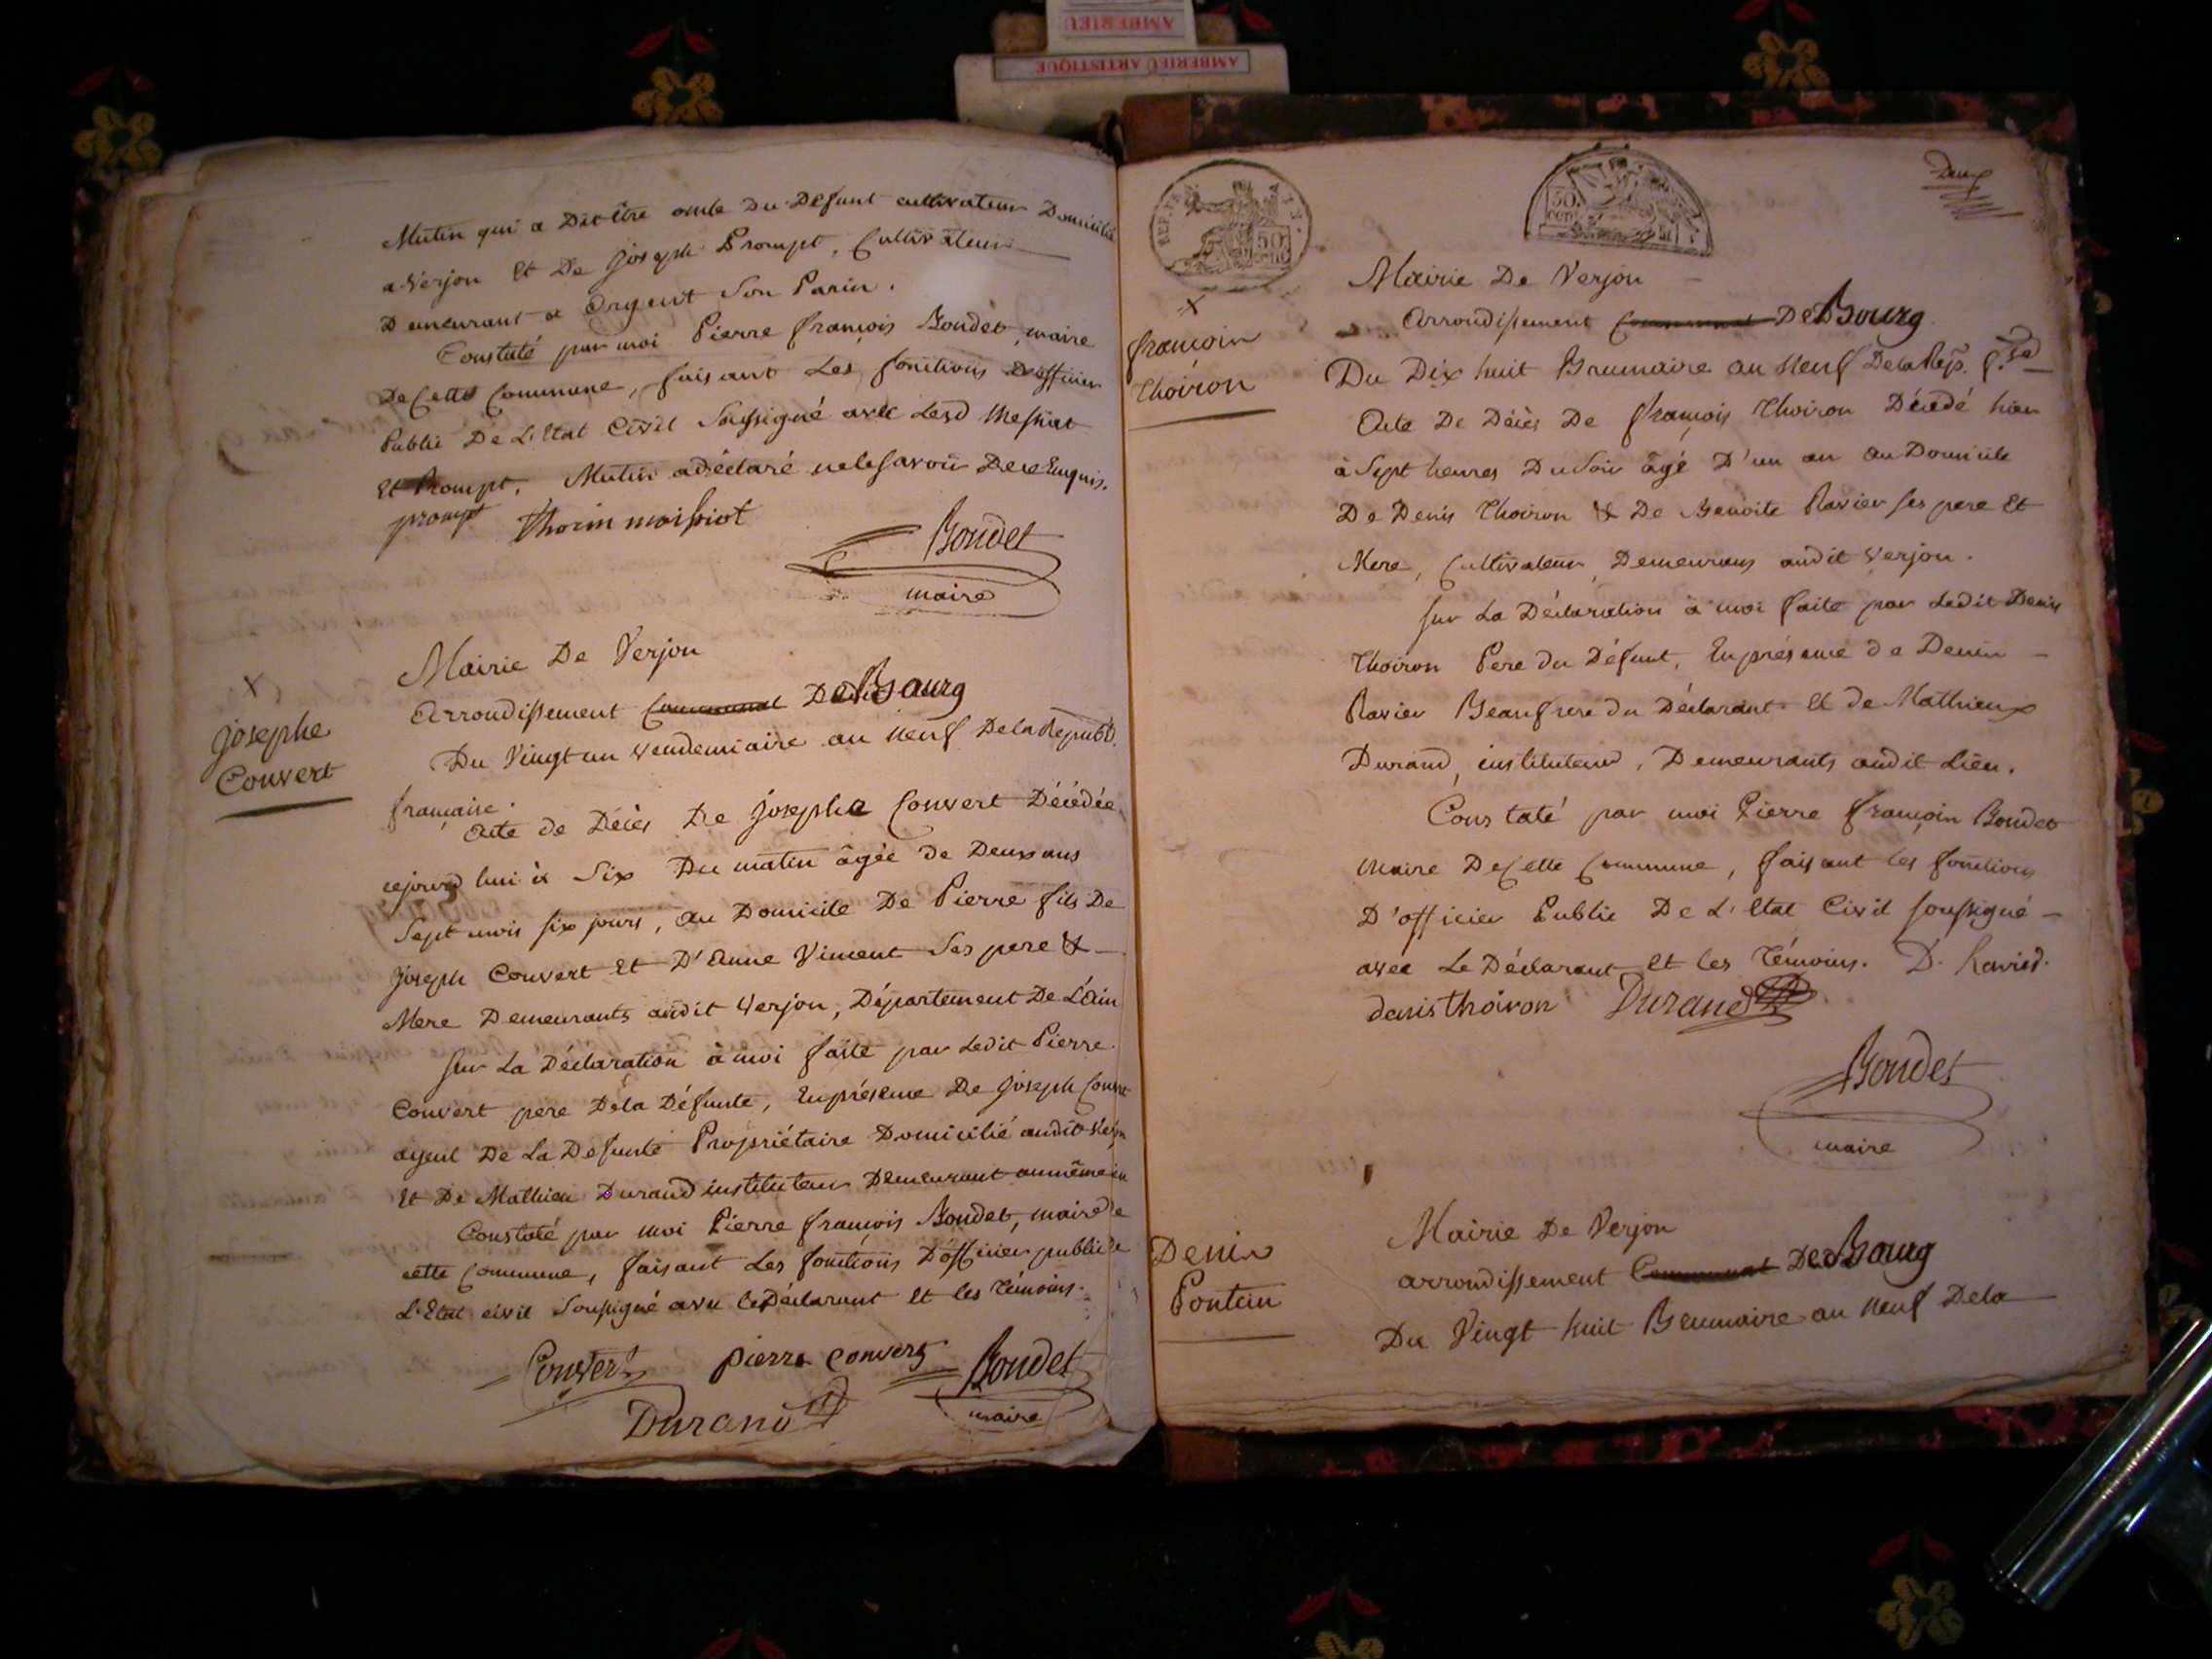 AMBERIEU
AMBERIEU ARTISTIQUE
Mutin qui a Dit être oncle Du Defunt cultivateur Domicilié
a Verjon Et De Joseph Prompt, Cultivateur
Demeurant a Orgent Son Parin.
Constaté par moi Pierre françois Bondet, maire
De Cette Commune, faisant Les fonctions D'officier
Public De L'Etat Civil Soussigné avec Lesd
Et Prompt, Mutin a déclaré ne le Savoir De ce Enquis.
prompt Thorin
Bondet
maire
Josephe
Convert
Mairie De Verjon
Arrondissement Communal De Bourg
Du Vingt un Vendemiaire an neuf De la Republ.
française.
Acte de Décès De Josephe Convert Décédée
cejourd hui à Six Du matin âgée de Deux ans
Sept mois six jours, au Domicile De Pierre fils De
Joseph Convert Et D'Anne Vincent Ses pere &
Mere Demeurants audit Verjon, Département De L'Ain
Sur La Déclaration à moi faite par Ledit Pierre
Convert pere De la Défunte, En présence De Joseph Conver
ayeul De La Defunte Propriétaire Domicilié audit Verjon
Et De Mathieu Durand instituteur Demeurant au même
Constaté par moi Pierre françois Bondet, maire de
cette Commune, faisant Les fonctions D'officier public de
L'Etat civil Soussigné avec le Déclarant Et les Témoins.
Convert pierre convert Bondet
Durand maire
REP. FRA.
50
cent
50
cen
Deux
françoin
Thoiron
Mairie De Verjon
Arrondissement Communal De Bourg
Du Dix huit Brumaire an Neuf De la Rep. f.se
Acte De Décès De françois Thoiron Décédé hier
à Sept heures Du Soir âgé D'un an au Domicile
De Denis Thoiron & De Benoite Ravier ses pere Et
Mere, Cultivateur, Demeurans audit Verjon.
Sur La Déclaration à moi faite par Ledit Denis
Thoiron Pere du Défunt, En présence de Denin
Ravier Beaufrere du Déclarant Et de Mathieux
Durand, instituteur, Demeurants audit Lieu.
Constaté par moi Pierre françoin Bondet
Maire De Cette Commune, faisant les fonctions
D'officier Public De L'Etat Civil soussigné
avec Le Déclarant Et les Témoins. D. Ravier.
denis thoiron Durand
Bondet
maire
Denin
Pontain
Mairie De Verjon
arrondissement Communal De Bourg
Du Vingt huit Brumaire an Neuf De la